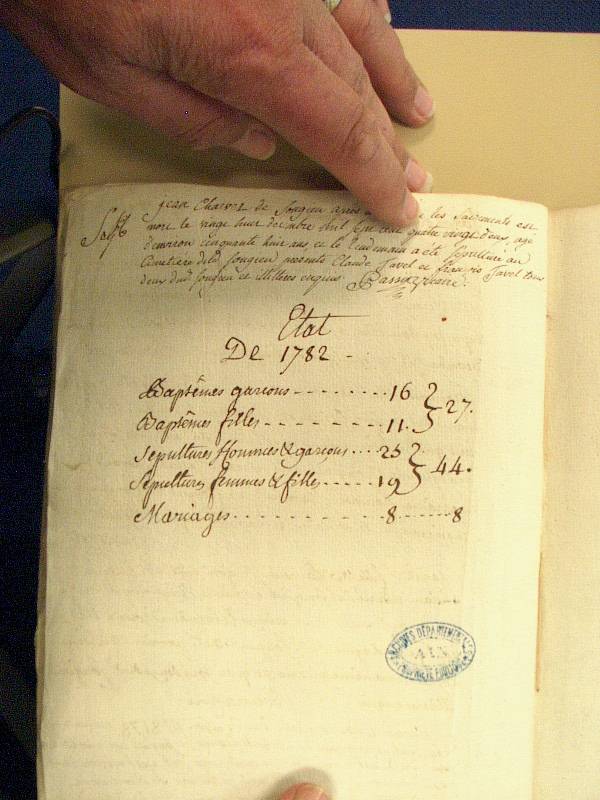 jean Charvet de Songieu après les Sacrements est
Sep.re mort le vingt huit decembre mil sept cent quatre vingt deux, agé
d'environ cinquante huit ans et le lendemain a été sepulturé au
Cimetiere dud. Songieu presents Claude Javel et françois Javel tous
deux dud. Songieu et illiteres enquis.
Etat
De 1782 -
Baptêmes garcons - - - - - - - - 16 } 27.
Baptêmes filles - - - - - - - - 11. }
Sepultures hommes & garcons ... 25 } 44.
Sepultures femmes & filles - - - - - 19 }
Mariages - - - - - - - - - - - 8 - - - - - 8
ARCHIVES DÉPARTEMENTALES
AIN
PROPRIÉTÉ PUBLIQUE